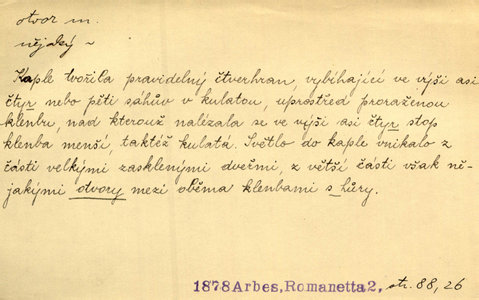 otvor m.
nějaký ~
Kaple tvořila pravidelný čtverhran, vybíhající ve výši asi
čtyr nebo pěti sáhův v kulatou, uprostřed proraženou
klenbu, nad kterouž nalézala se ve výši asi čtyr stop
klenba menší, taktéž kulatá. Světlo do kaple vnikalo z
části velkými zasklenými dveřmi, z větší části však ně-
jakými otvory mezi oběma klenbami s hůry.
1878 Arbes, Romanetta 2, str. 88, 26